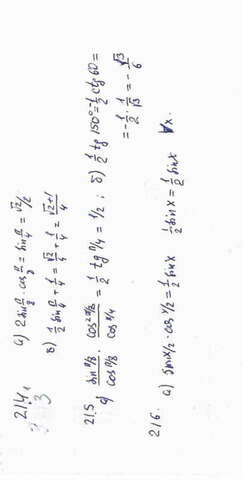 214. a) 2 sin π/8 · cos π/8 = sin π/4 = √2/2
в) 1/2 sin π/4 + 1/4 = √2/4 + 1/4 = (√2+1)/4
21.5 a) sin π/8 / cos π/8 · cos² π/8 / cos π/4 = 1/2 tg π/4 = 1/2 ; б) 1/2 tg 150° = -1/2 ctg 60 =
= -1/2 · 1/√3 = -√3/6
216. a) sin x/2 · cos x/2 = 1/2 sin x   1/2 sin x = 1/2 sin x   ∀x.